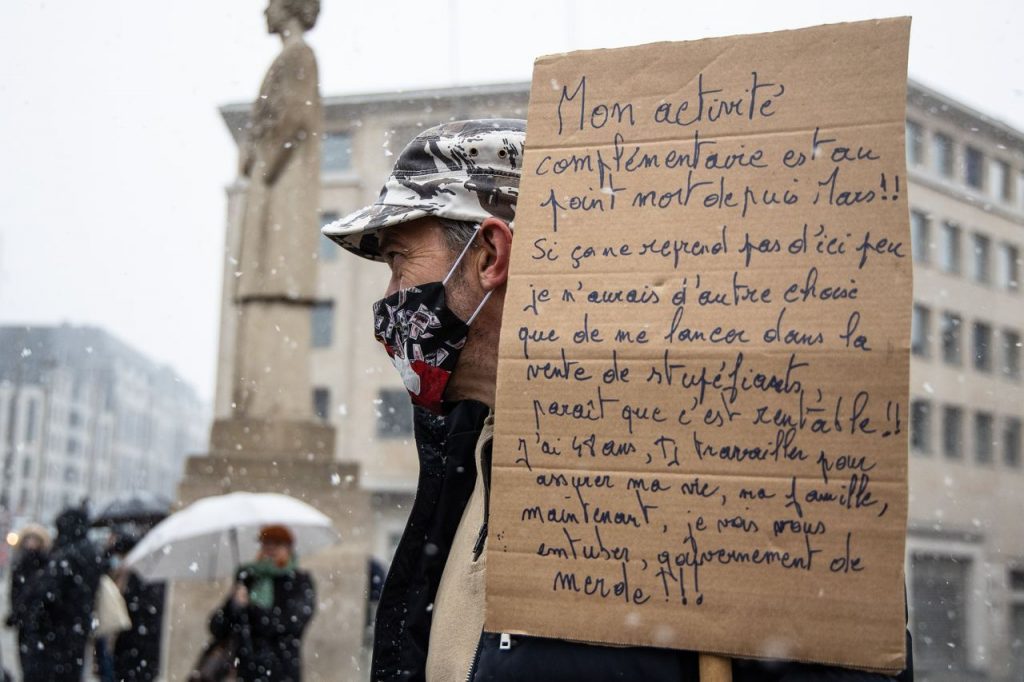 Mon activité
complémentaire est au
point mort depuis Mars!!
Si ça ne reprend pas d'ici peu
je n'aurais d'autre choise
que de me lancer dans la
vente de stupéfiants,
paraît que c'est rentable!!
J'ai 48 ans, travailler pour
assurer ma vie, ma famille,
maintenant, je vais vous
entuber, gouvernement de
merde!!!